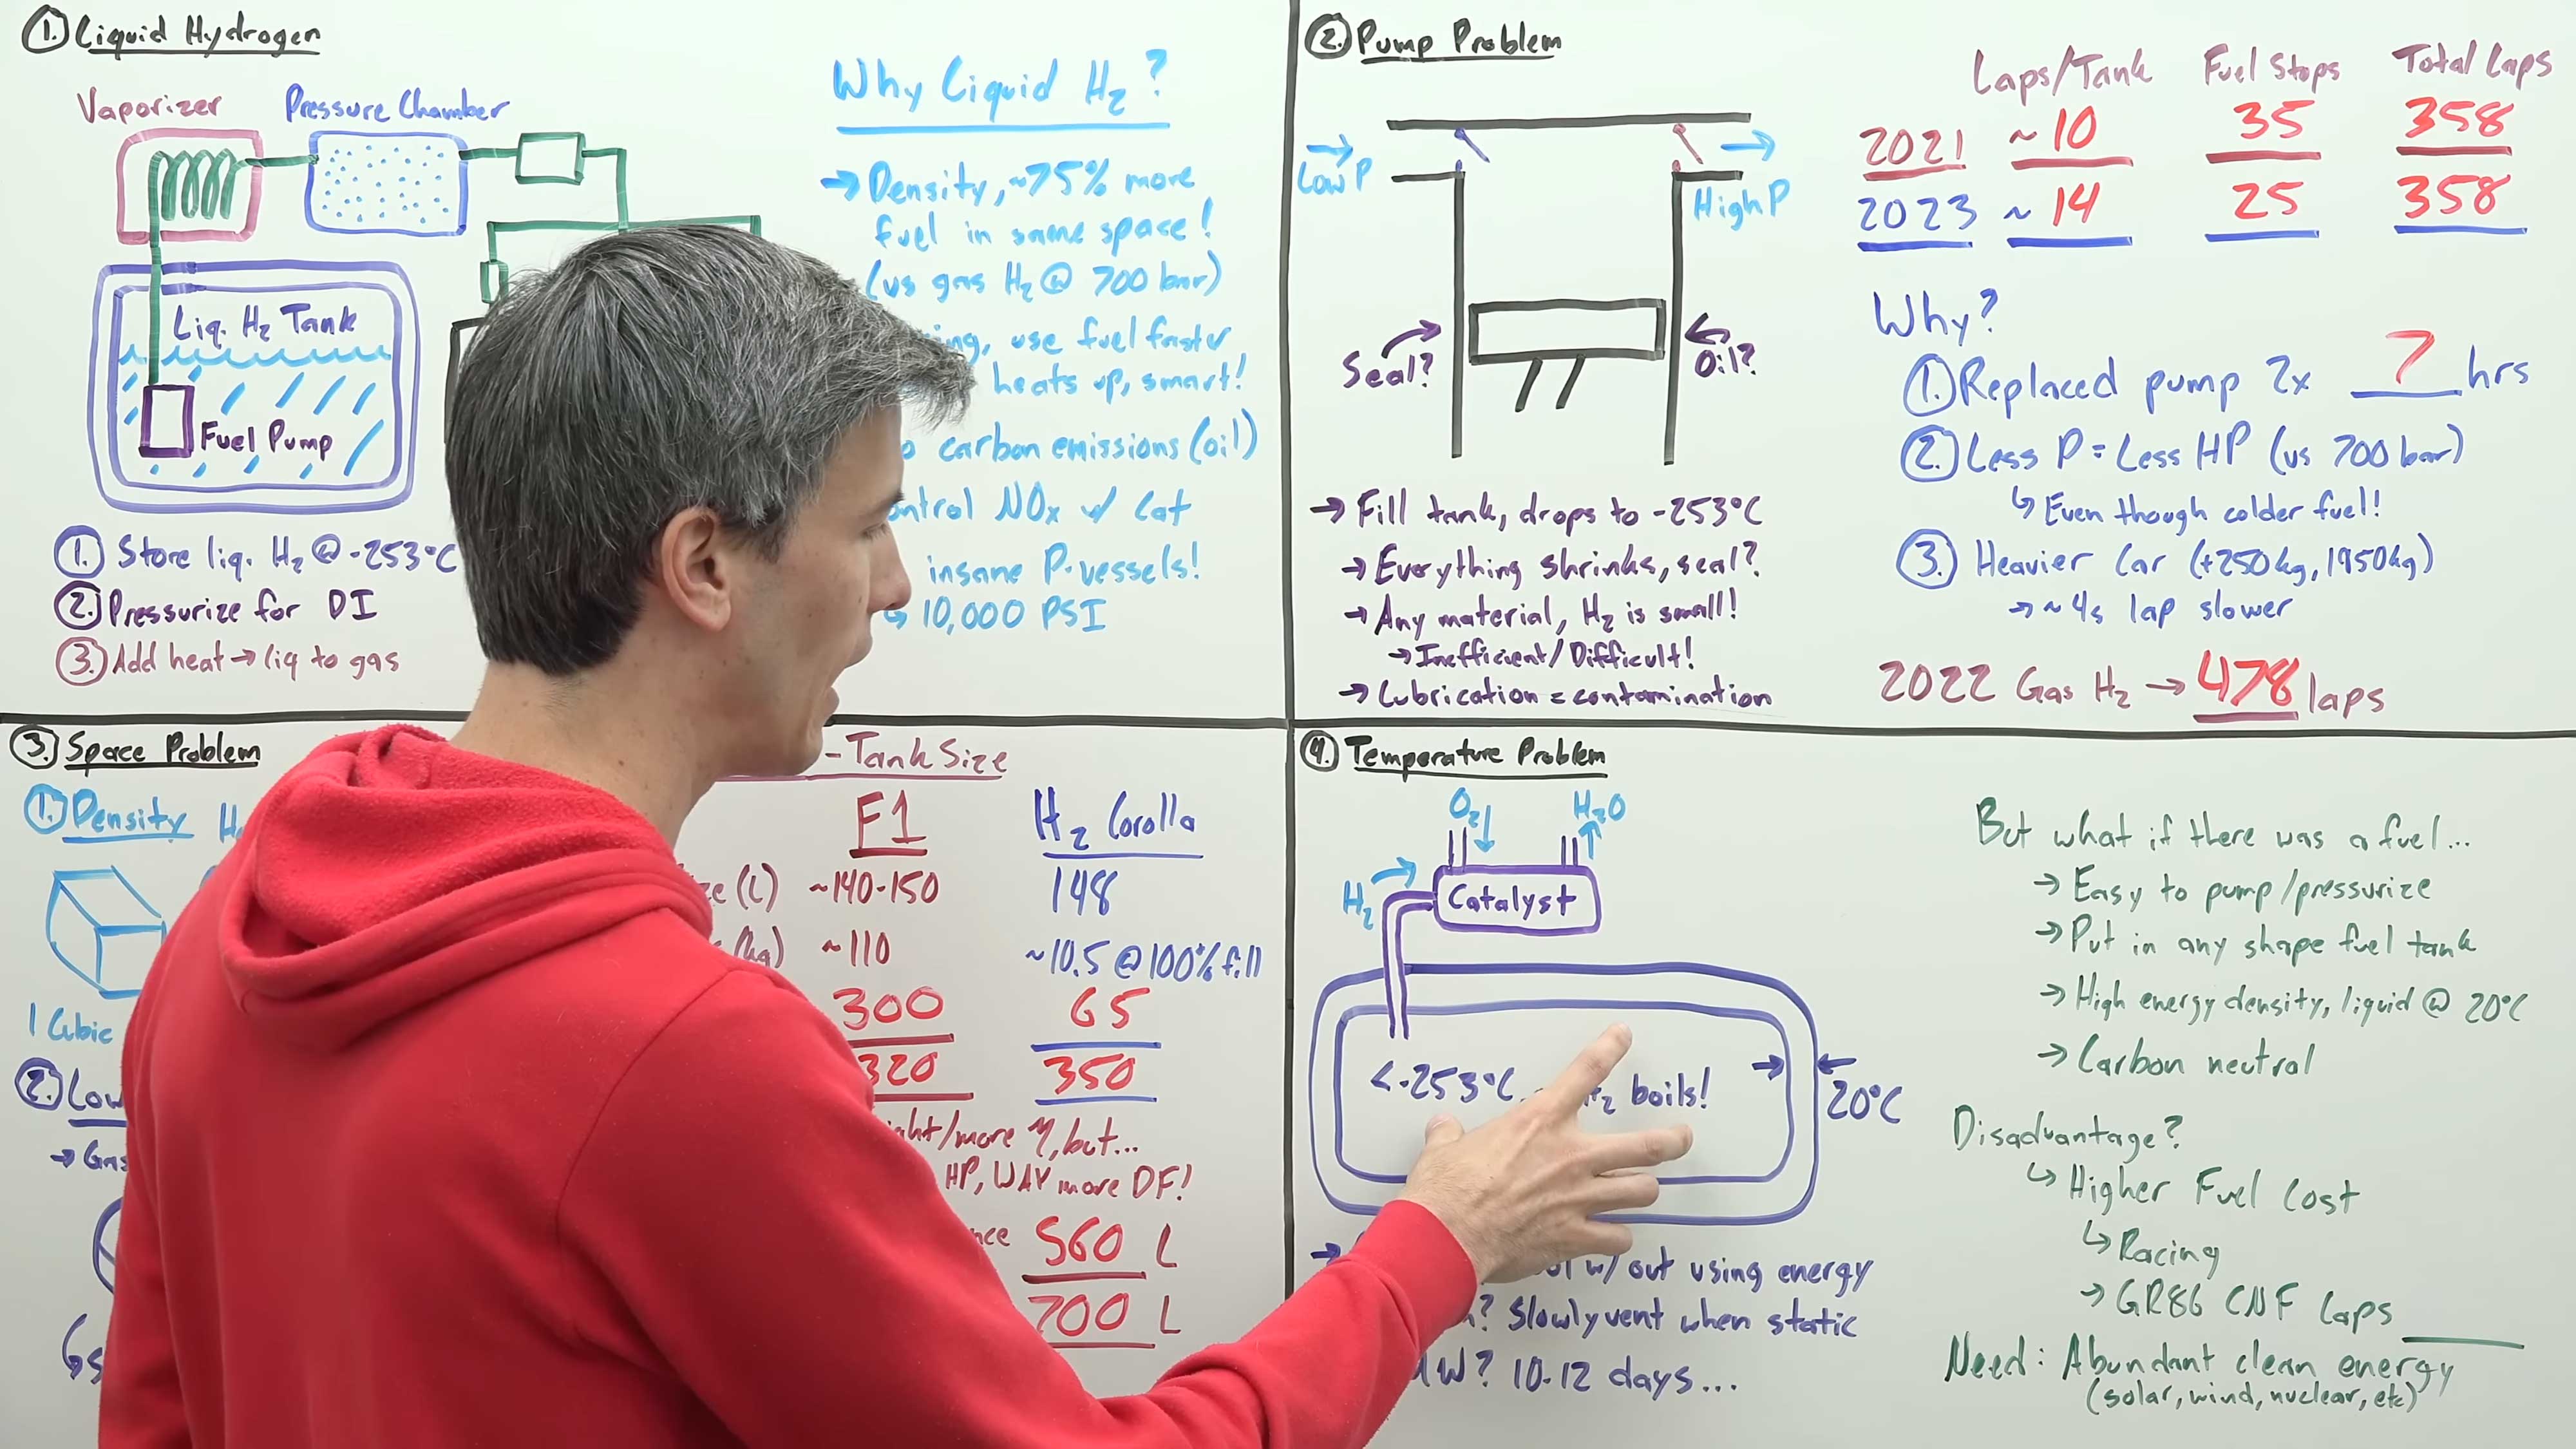 1. Liquid Hydrogen
Vaporizer
Pressure Chamber
Liq. H2 Tank
Fuel Pump
1. Store liq. H2 @ -253°C
2. Pressurize for DI
3. Add heat → liq to gas
Why Liquid H2?
→ Density, ~75% more
fuel in same space!
(vs gas H2 @ 700 bar)
use fuel faster
heats up, smart!
carbon emissions (oil)
NOx w/ cat
insane P-vessels!
↳ 10,000 PSI
2. Pump Problem
→
Low P
→
High P
Seal?
Oil?
→ Fill tank, drops to -253°C
→ Everything shrinks, seal?
→ Any material, H2 is small!
→ Inefficient/Difficult!
→ Lubrication = contamination
Laps/Tank Fuel Stops Total Laps
2021 ~10 35 358
2023 ~14 25 358
Why?
1. Replaced pump 2x 7 hrs
2. Less P = Less HP (vs 700 bar)
↳ Even though colder fuel!
3. Heavier Car (+250kg, 1950kg)
→ ~4s lap slower
2022 Gas H2 → 478 laps
3. Space Problem
1. Density
1 Cubic
2. Low
→ Gas
- Tank Size
F1 H2 Corolla
(L) ~140-150 148
(kg) ~110 ~10.5 @ 100% fill
300 65
320 350
/more η, but...
HP, WAY more DF!
560 L
700 L
4. Temperature Problem
O2 ↓ H2O ↑
H2 →
Catalyst
<-253°C boils!
→ ←
20°C
→
w/out using energy
? Slowly vent when static
? 10-12 days...
But what if there was a fuel...
→ Easy to pump/pressurize
→ Put in any shape fuel tank
→ High energy density, liquid @ 20°C
→ Carbon neutral
Disadvantage?
↳ Higher Fuel Cost
↳ Racing
→ GR86 CNF Laps
Need: Abundant clean energy
(solar, wind, nuclear, etc)